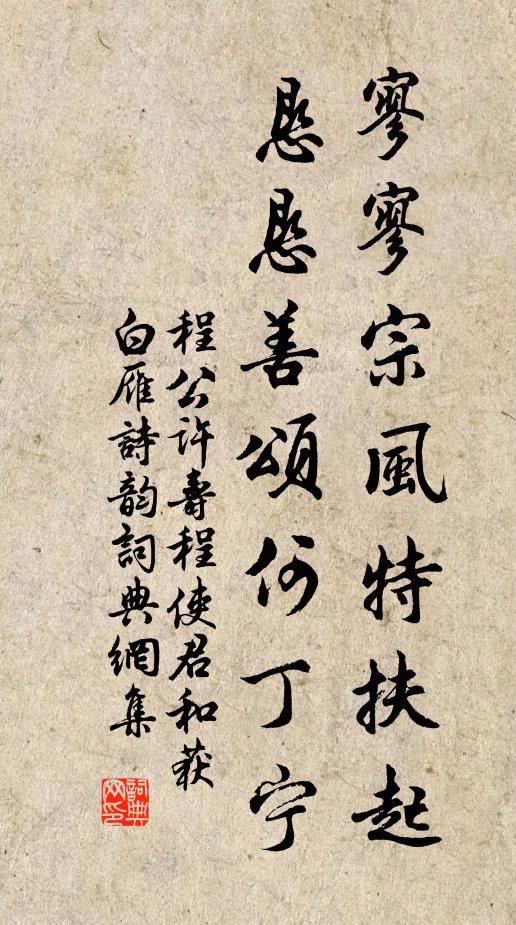 寥寥宗風特扶起
恳恳善頌何丁宁
程公许壽程使君和荻
白雁詩韵詞典網集
詞典网印